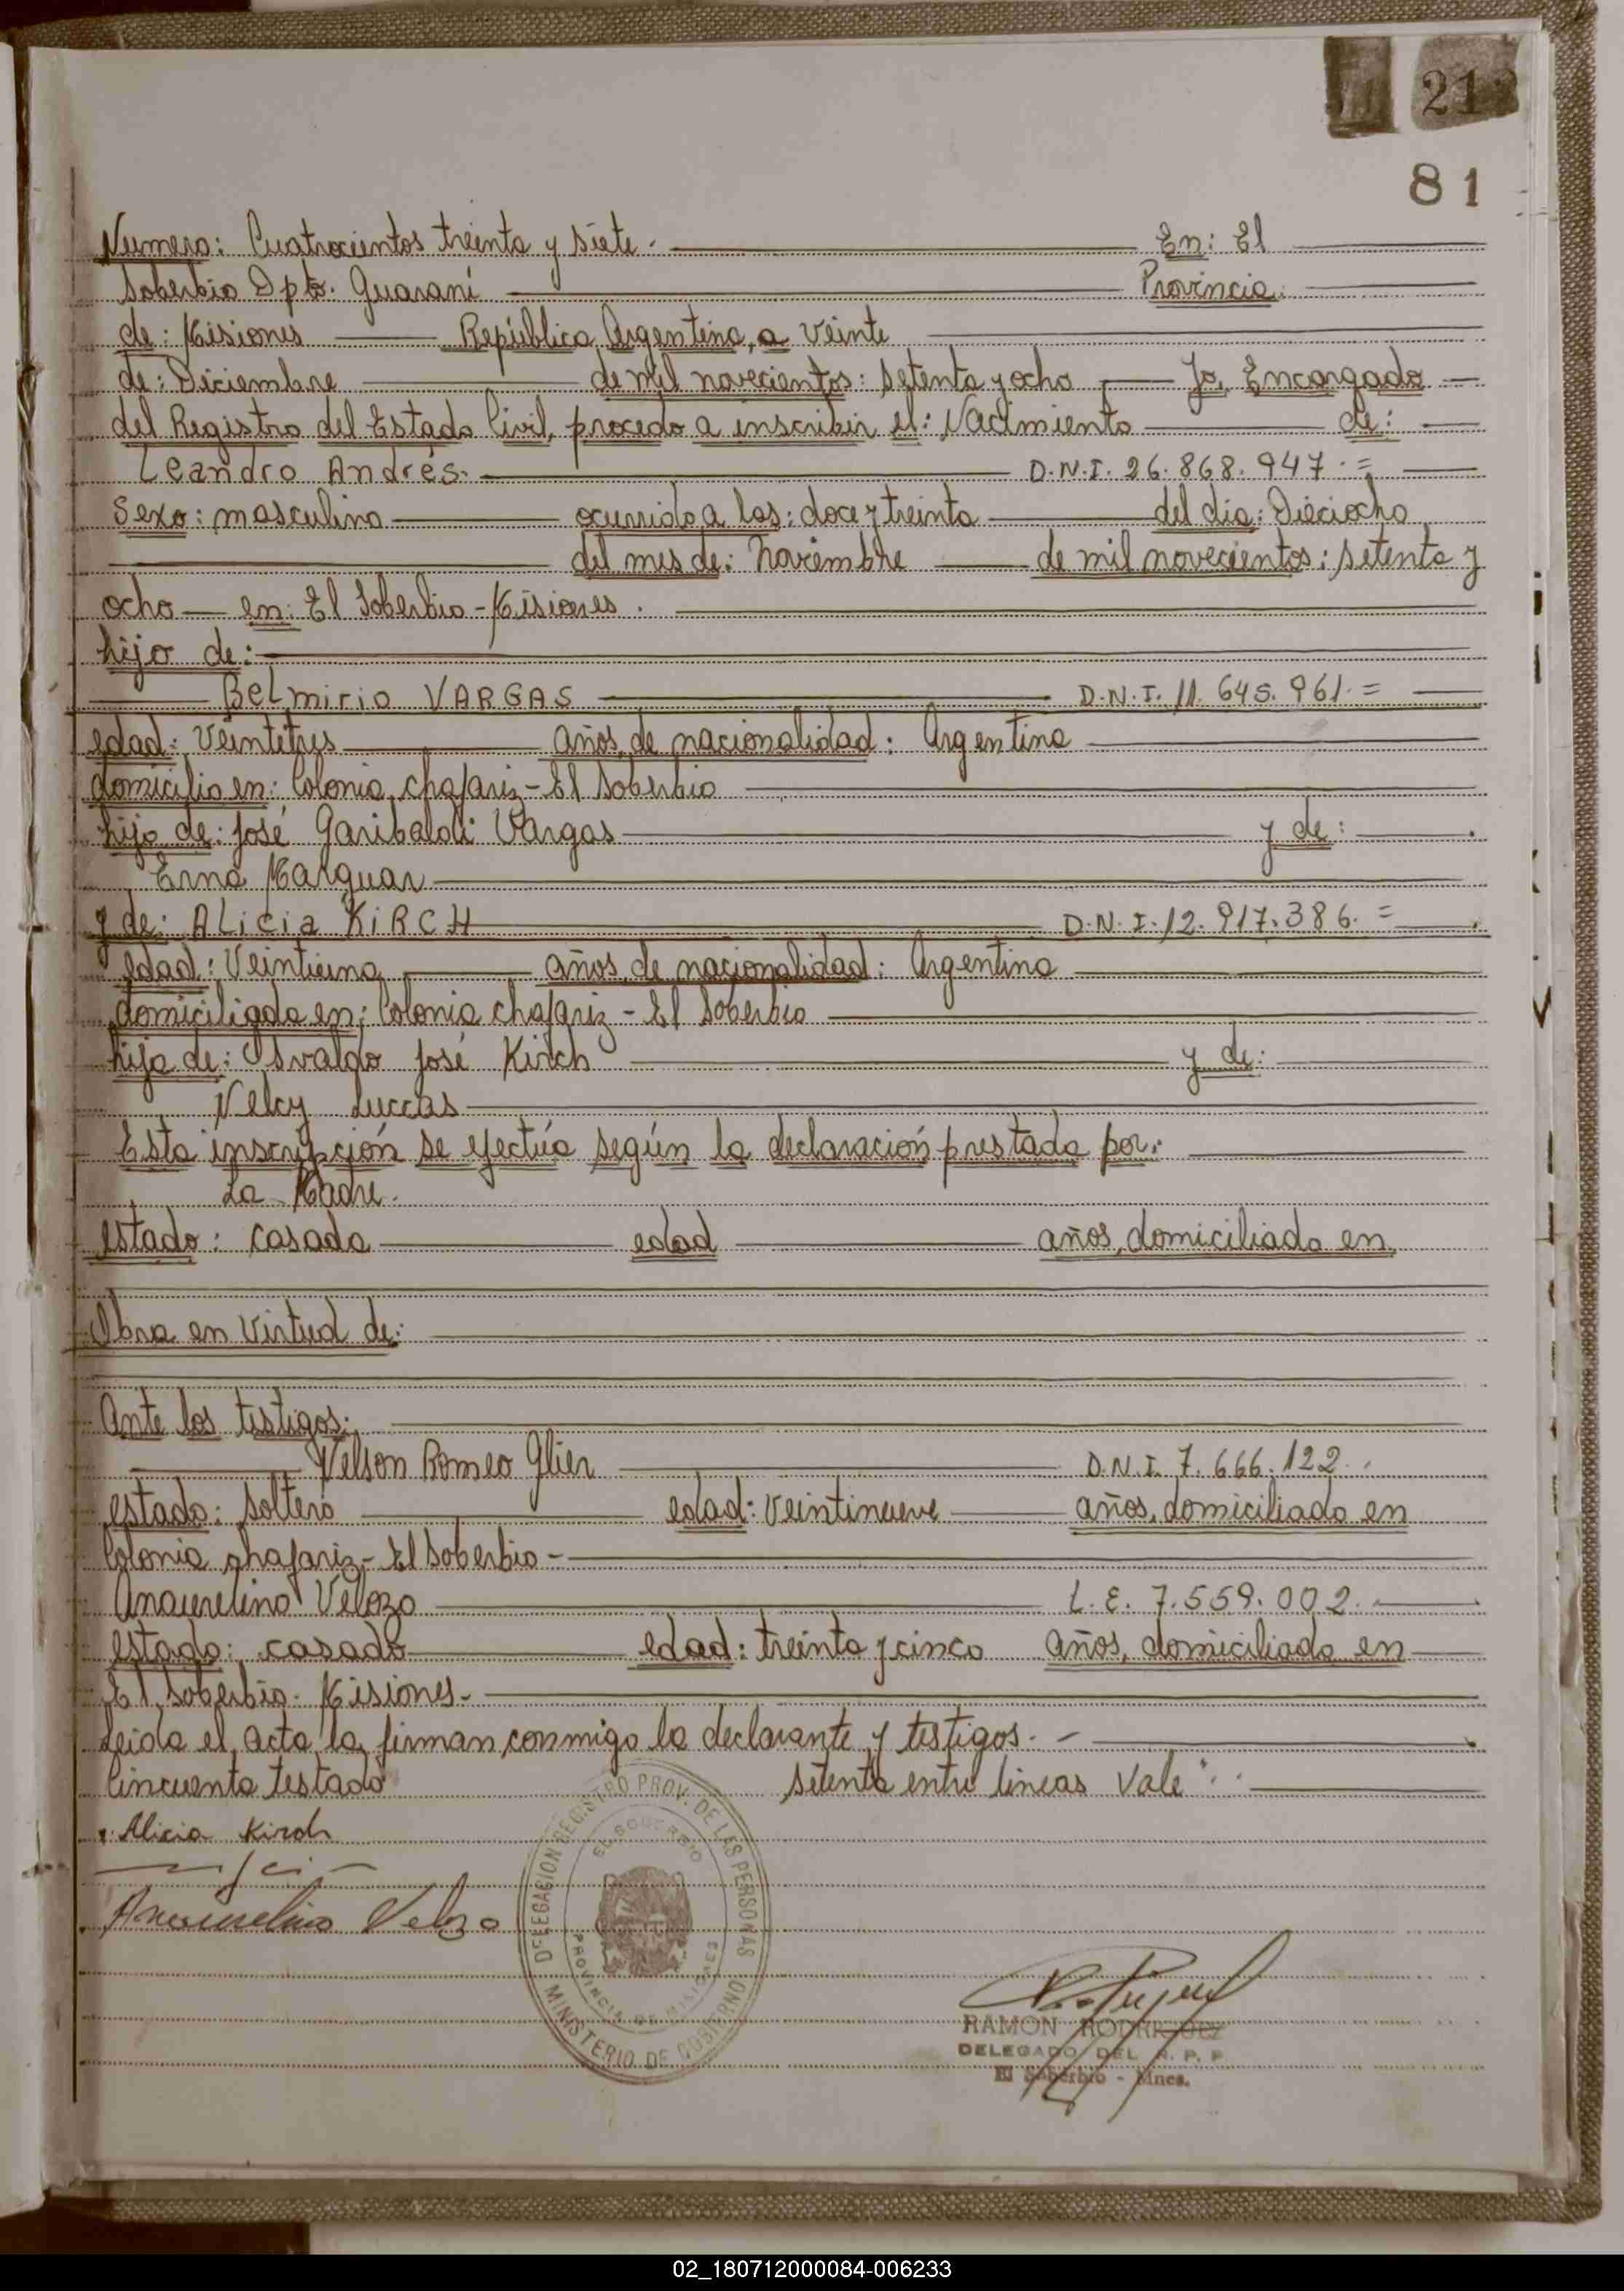 212
81
Numero: Cuatrocientos treinta y siete. En: El
Soberbio Dpto. Guaraní Provincia
de: Misiones República Argentina, a Veinte
de: Diciembre de mil novecientos: setenta y ocho Yo, Encargado
del Registro del Estado Civil, procedo a inscribir el: Nacimiento de:
Leandro Andrés. D.N.I. 26.868.947.=
Sexo: masculino ocurrido a las: doce y treinta del día: Dieciocho
del mes de: Noviembre de mil novecientos: setenta y
ocho en: El Soberbio - Misiones.
hijo de:
Belmirio VARGAS D.N.I. 11.645.961.=
edad: Veintitres años, de nacionalidad: Argentina
domicilio en: Colonia chafariz - El Soberbio
hijo de: José Garibaldi Vargas y de:
Erna Marguar
y de: Alicia KIRCH D.N.I. 12.917.386.=
edad: Veintiuna años, de nacionalidad: Argentina
domiciliada en: Colonia chafariz - El Soberbio
hija de: Osvaldo José Kirch y de:
Nelcy Luccas
Esta inscripción se efectúa según la declaración prestada por:
La Madre.
estado: casada edad años, domiciliada en
Obra en Virtud de:
Ante los testigos:
Nelson Romeo Glier D.N.I. 7.666.122.
estado: soltero edad: Veintinueve años, domiciliado en
Colonia chafariz - El Soberbio -
Anaurelino Velozo L.E. 7.559.002.
estado: casado edad: treinta y cinco años, domiciliado en
El Soberbio. Misiones.
Leida el acta la firman conmigo la declarante y testigos. -
Cincuenta testado setenta entre lineas Vale
Alicia Kirch
Anaurelino Velozo
DELEGACION REGISTRO PROV. DE LAS PERSONAS
EL SOBERBIO
PROVINCIA DE MISIONES
MINISTERIO DE GOBIERNO
RAMON RODRIGUEZ
DELEGADO DEL R. P. P.
El Soberbio - Mnes.
02_180712000084-006233